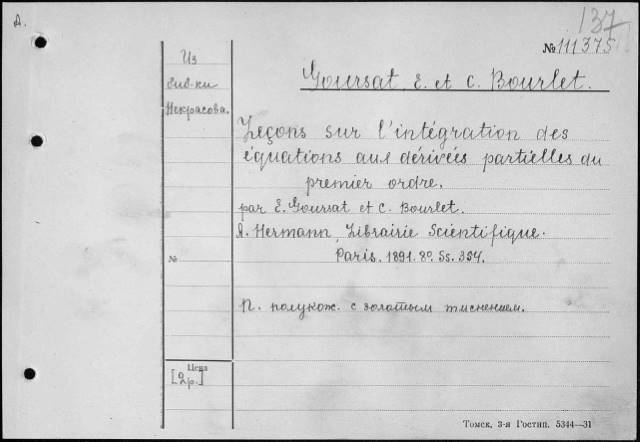 А.
137
№ 111375
Из
биб-ки
Некрасова.
Goursat E. et C. Bourlet.
Leçons sur l'intégration des
équations aux dérivées partielles du
premier ordre.
par E. Goursat et C. Bourlet.
A. Hermann, Librairie Scientifique.
№
Paris. 1891. 8°. Ss. 354.
П. полукож. с золотым тиснением.
Цена
[2р.]
Томск, 3-я Гостип. 5344—31